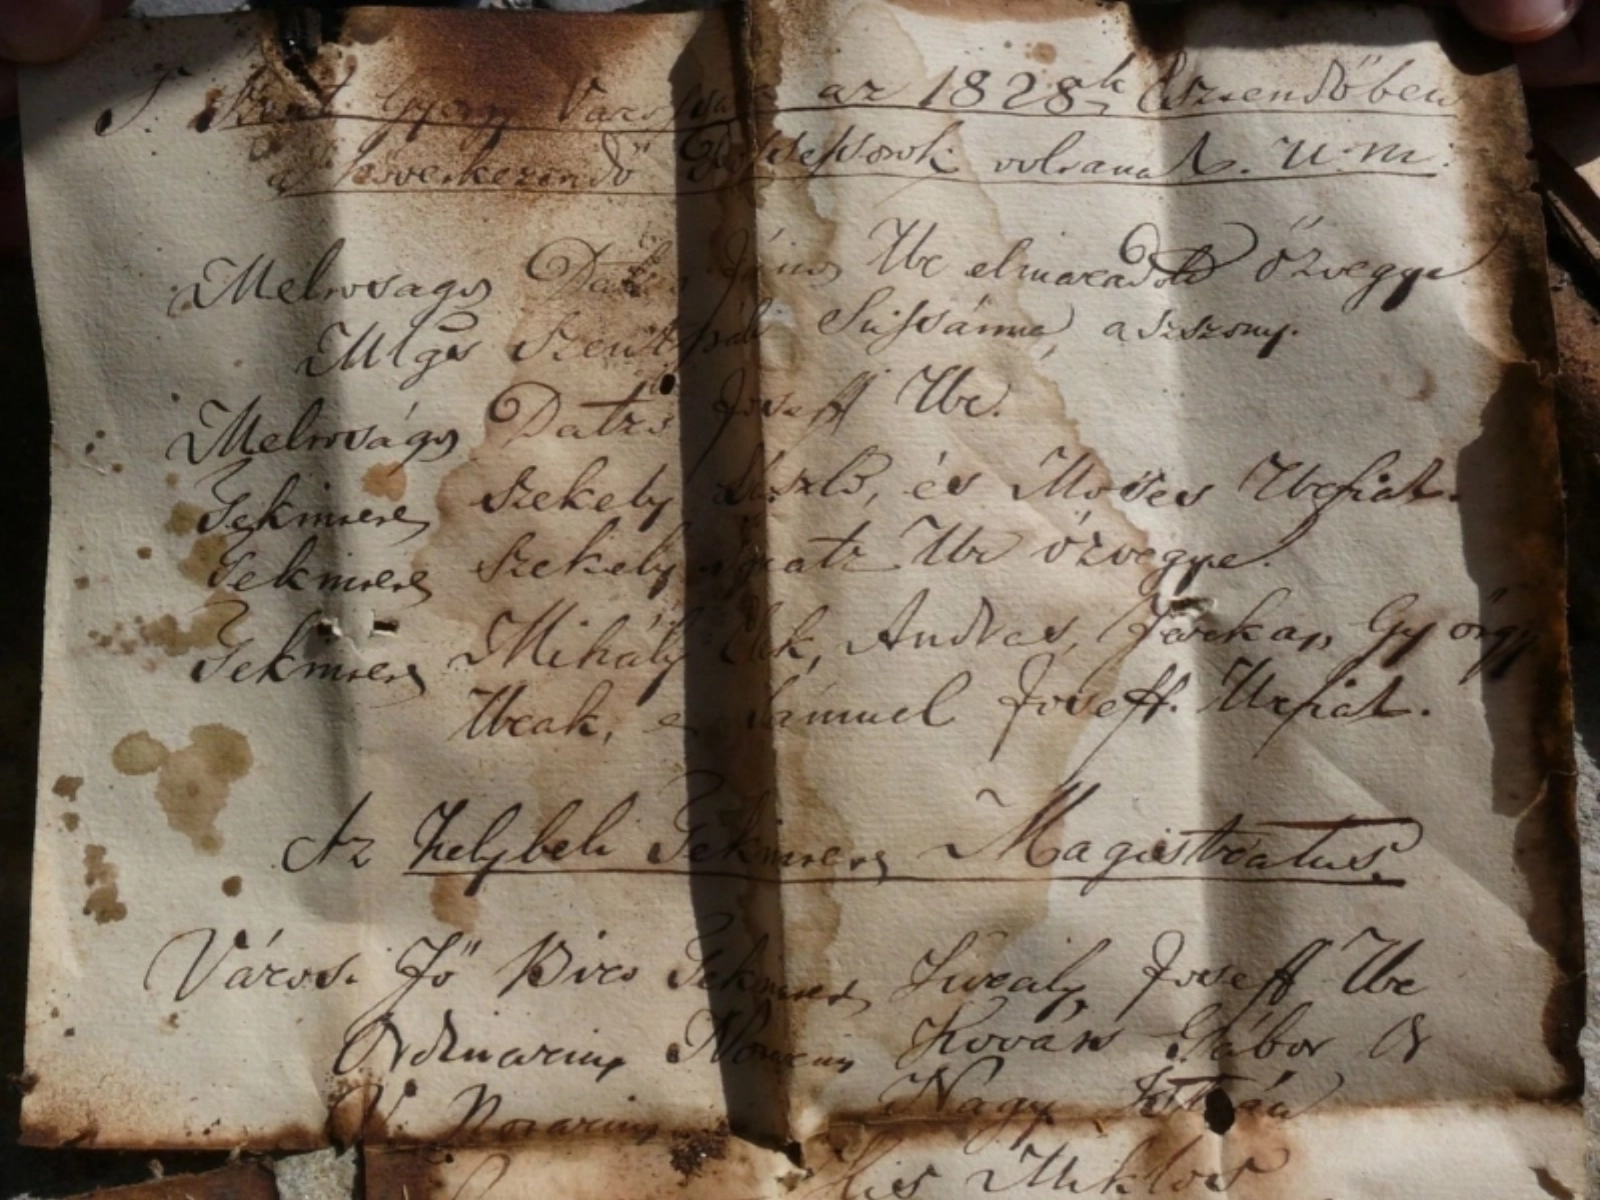 S. Szent György Váross az 1828k Esztendőben
a következendő Possessorok voltanak. U. m.
Méltoságos Datzo János Ur elmaradott özvegye
Mlgs Szentpáli Susánna aszszony.
Méltoságos Datzo Joseff Ur.
Tekintetes Szekely László, és Moses Urfiak.
Tekintetes Szekely Ignatz Ur özvegye.
Tekintetes Mihály Elek, Andras, Farkas, György
Urak, es Sámuel Joseff Urfiak.
Az helybeli Tekintetes Magistratus.
Városi Fö Biro Tekintetes Király Joseff Ur
Ordinarius Notarius Kovács Gábor Ur
V. Notarius Nagy István
Kis Miklos